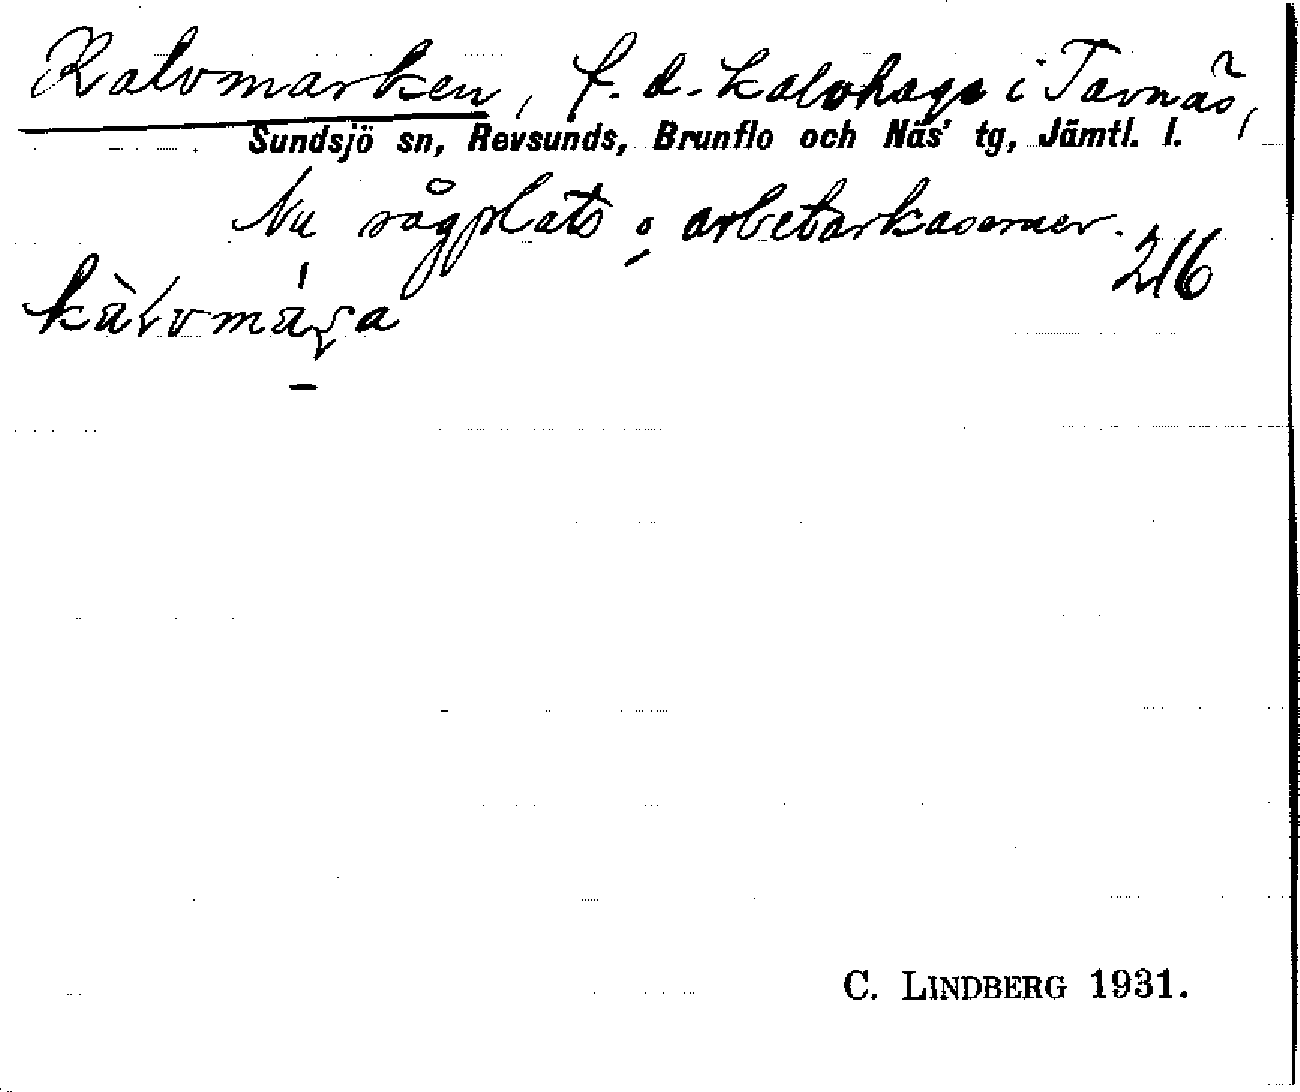 Kalvmarken, f.d. kalvhage i Tavnäs,
Sundsjö sn, Revsunds, Brunflo och Näs' tg, Jämtl. l.
Nu sågplats o. arbetarkaserner.
216
C. LINDBERG 1931.